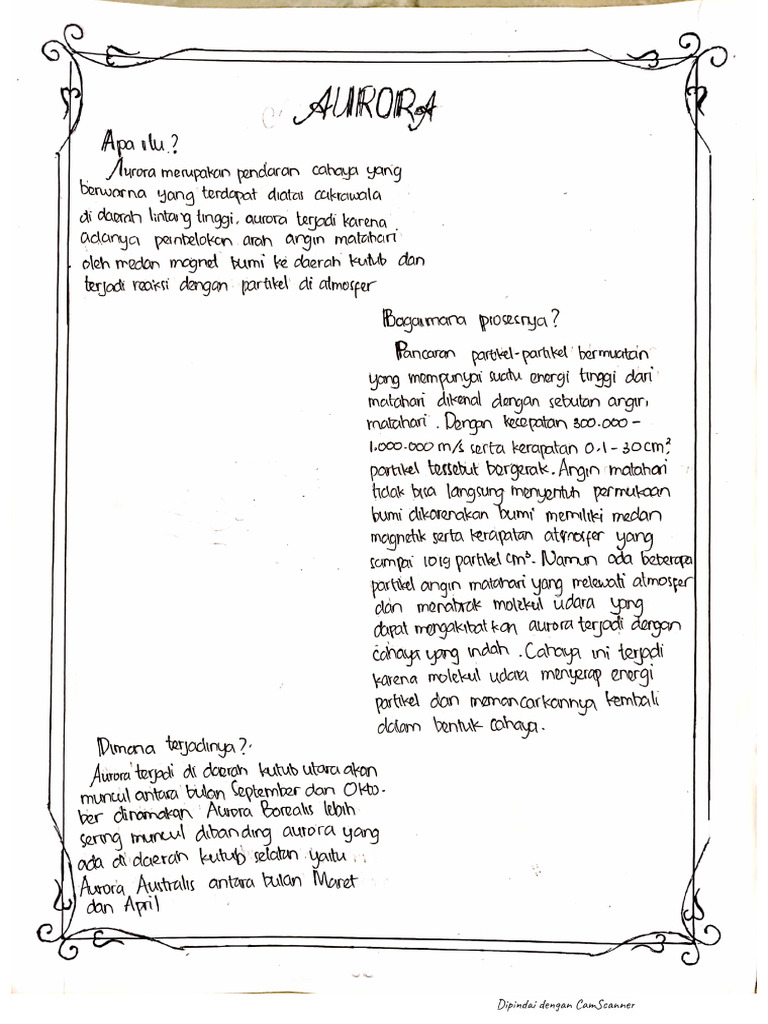 AURORA
Apa itu?
Aurora merupakan pendaran cahaya yang
berwarna yang terdapat diatas cakrawala
di daerah lintang tinggi, aurora terjadi karena
adanya pembelokan arah angin matahari
oleh medan magnet bumi ke daerah kutub dan
terjadi reaksi dengan partikel di atmosfer
Bagaimana prosesnya?
Pancaran partikel-partikel bermuatan
yang mempunyai suatu energi tinggi dari
matahari dikenal dengan sebutan angin
matahari. Dengan kecepatan 300.000 -
1.000.000 m/s serta kerapatan 0.1 - 30 cm³,
partikel tersebut bergerak. Angin matahari
tidak bisa langsung menyentuh permukaan
bumi dikarenakan bumi memiliki medan
magnetik serta kerapatan atmosfer yang
sampai 1019 partikel cm³. Namun ada beberapa
partikel angin matahari yang melewati atmosfer
dan menabrak molekul udara yang
dapat mengakibatkan aurora terjadi dengan
cahaya yang indah. Cahaya ini terjadi
karena molekul udara menyerap energi
partikel dan memancarkannya kembali
dalam bentuk cahaya.
Dimana terjadinya?
Aurora terjadi di daerah kutub utara akan
muncul antara bulan September dan Okto-
ber dinamakan Aurora Borealis lebih
sering muncul dibanding aurora yang
ada di daerah kutub selatan yaitu
Aurora Australis antara bulan Maret
dan April
Dipindai dengan CamScanner